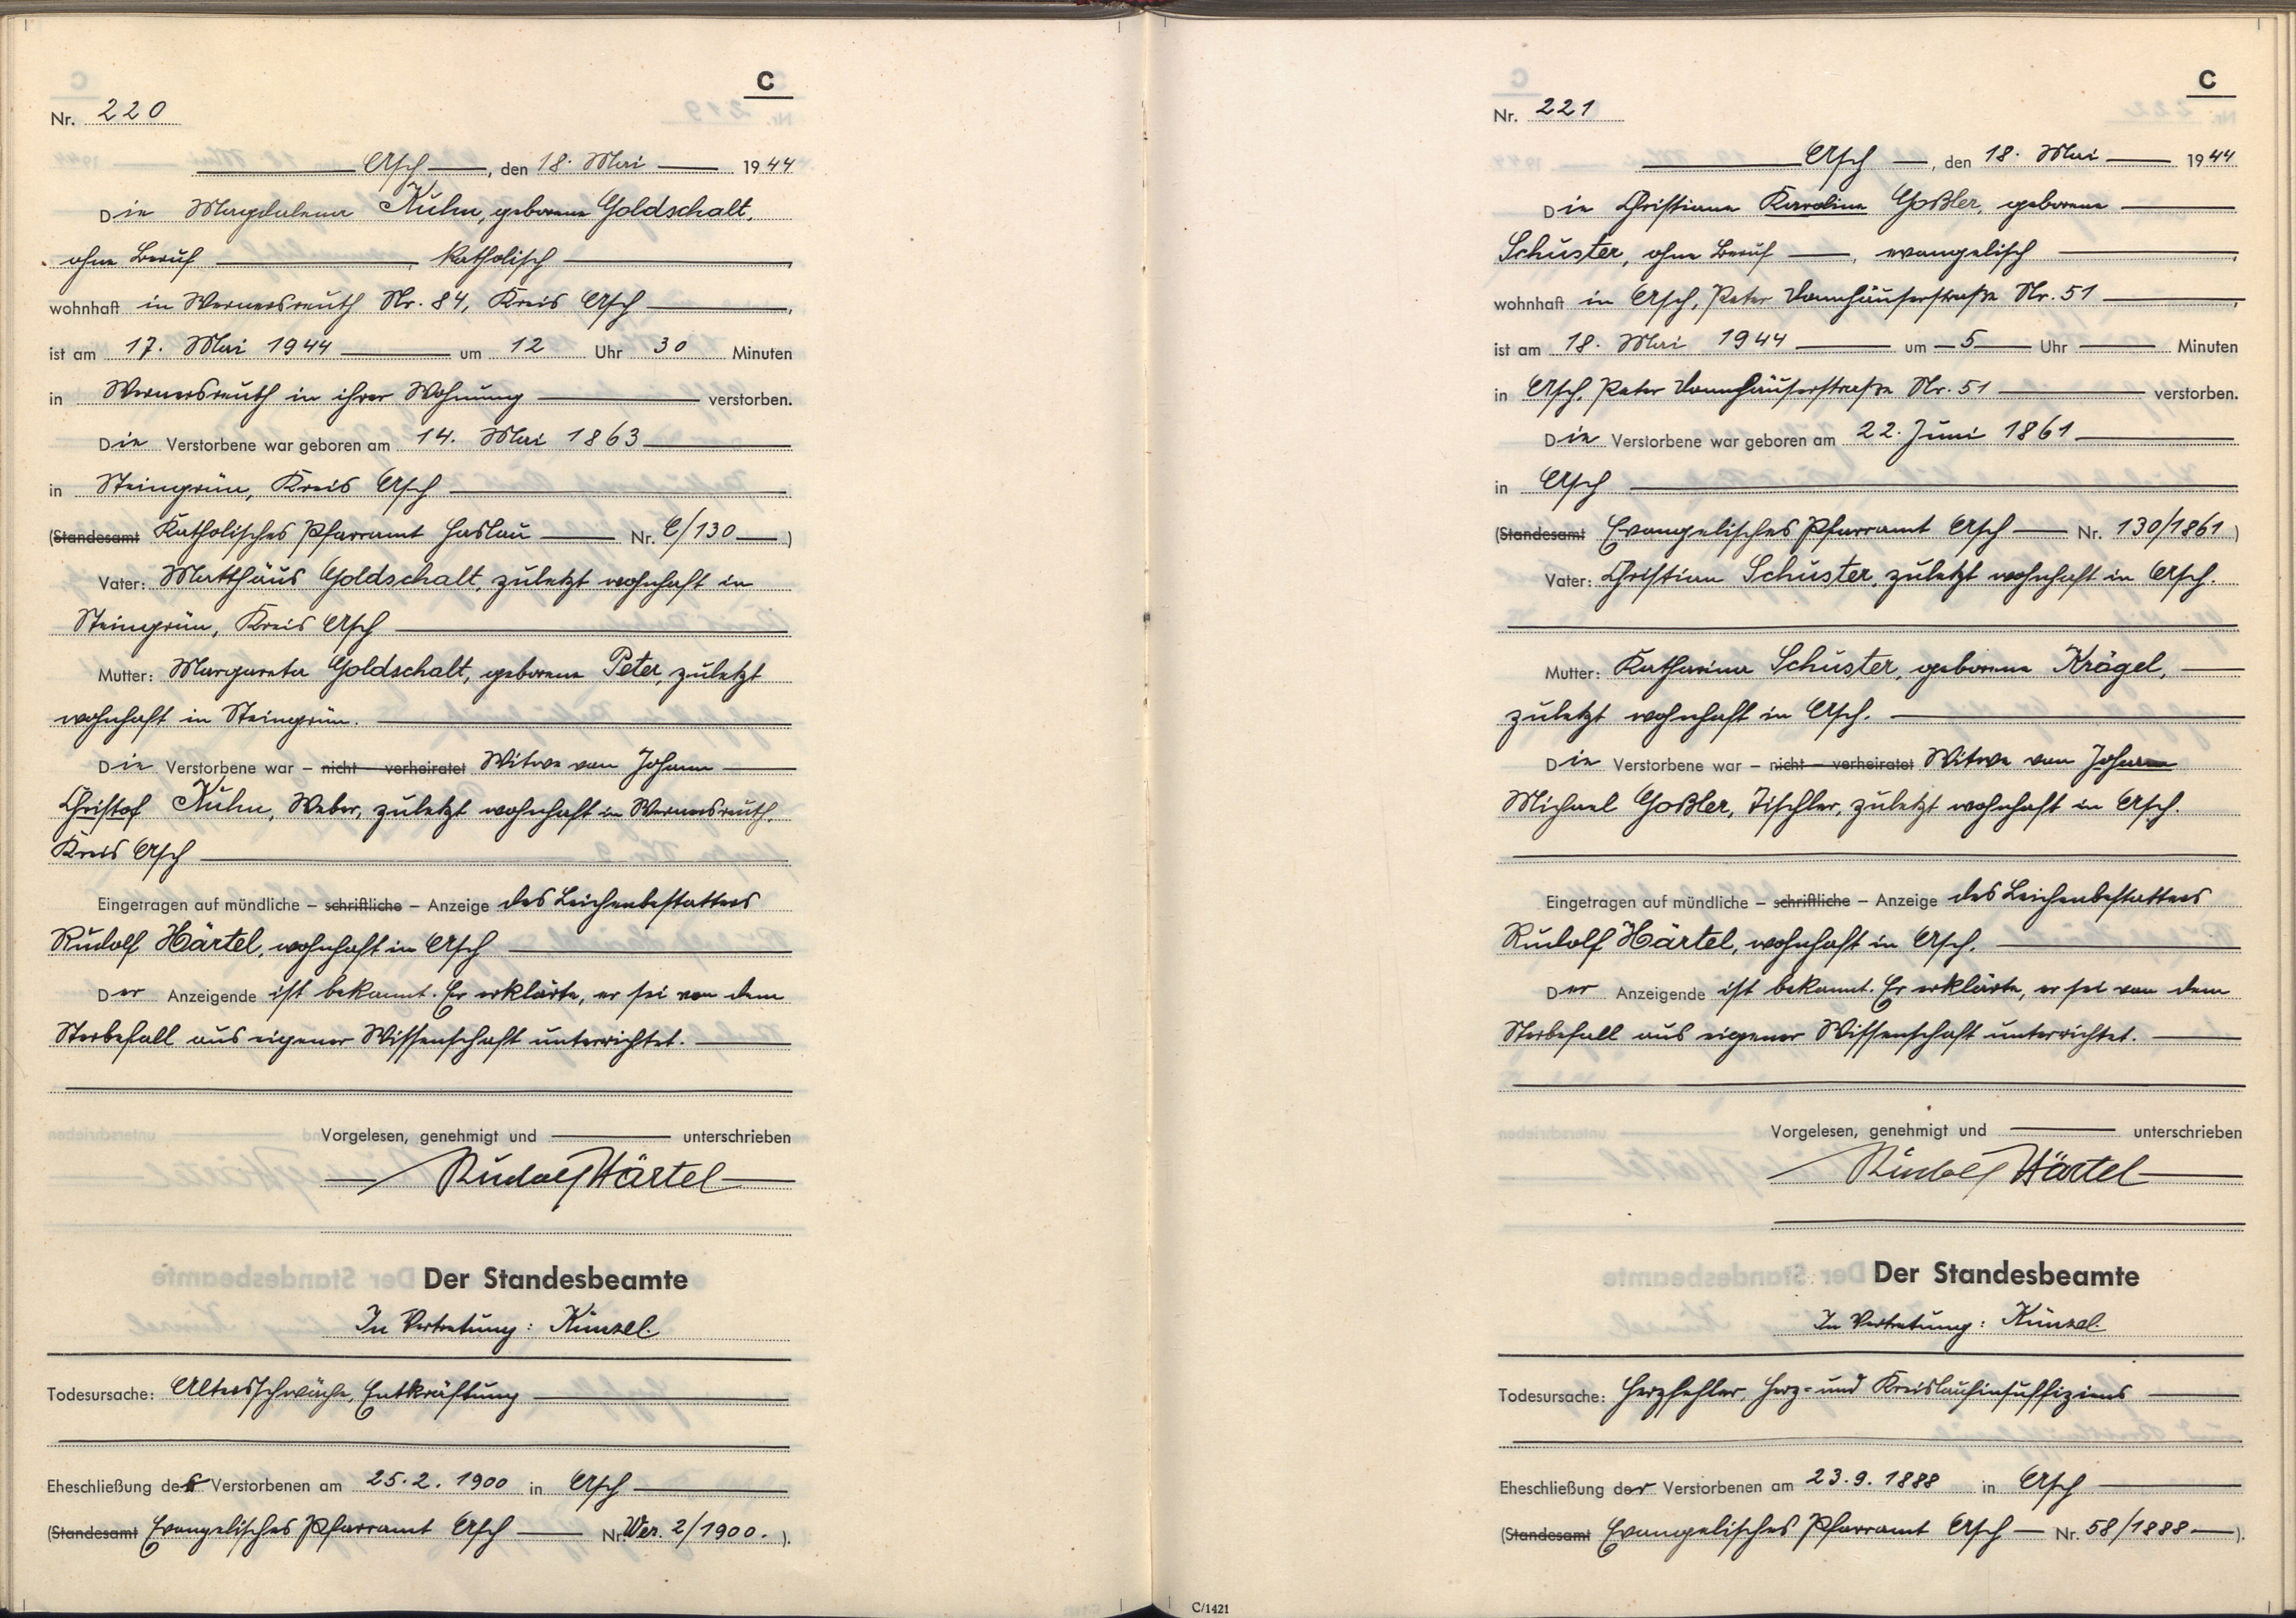 C
Nr. 220
Asch, den 18. Mai 1944
Die Magdalena Kühn, geborene Goldschalt,
ohne Beruf, katholisch,
wohnhaft in Wernersreuth Nr. 84, Kreis Asch,
ist am 17. Mai 1944 um 12 Uhr 30 Minuten
in Wernersreuth in ihrer Wohnung verstorben.
Die Verstorbene war geboren am 14. Mai 1863
in Steingrün, Kreis Asch
(Standesamt Katholisches Pfarramt Haslau Nr. C/130)
Vater: Matthäus Goldschalt, zuletzt wohnhaft in
Steingrün, Kreis Asch
Mutter: Margareta Goldschalt, geborene Peter, zuletzt
wohnhaft in Steingrün.
Die Verstorbene war – nicht – verheiratet Witwe von Johann
Christof Kühn, Weber, zuletzt wohnhaft in Wernersreuth,
Kreis Asch
Eingetragen auf mündliche – schriftliche – Anzeige des Leichenbestatters
Rudolf Härtel, wohnhaft in Asch
Der Anzeigende ist bekannt. Er erklärte, er sei von dem
Sterbefall aus eigener Wissenschaft unterrichtet.
Vorgelesen, genehmigt und unterschrieben
Rudolf Härtel
Der Standesbeamte
In Vertretung: Künzel.
Todesursache: Altersschwäche, Entkräftung
Eheschließung der Verstorbenen am 25.2.1900 in Asch
(Standesamt Evangelisches Pfarramt Asch Nr. Wer. 2/1900.).
C
Nr. 221
Asch, den 18. Mai 1944
Die Christiane Karoline Goßler, geborene
Schuster, ohne Beruf, evangelisch,
wohnhaft in Asch, Peter Donnhäuserstraße Nr. 51,
ist am 18. Mai 1944 um 5 Uhr Minuten
in Asch, Peter Donnhäuserstraße Nr. 51 verstorben.
Die Verstorbene war geboren am 22. Juni 1861
in Asch
(Standesamt Evangelisches Pfarramt Asch Nr. 130/1861)
Vater: Christian Schuster, zuletzt wohnhaft in Asch.
Mutter: Katharina Schuster, geborene Krögel,
zuletzt wohnhaft in Asch.
Die Verstorbene war – nicht – verheiratet Witwe von Johann
Michael Goßler, Tischler, zuletzt wohnhaft in Asch.
Eingetragen auf mündliche – schriftliche – Anzeige des Leichenbestatters
Rudolf Härtel, wohnhaft in Asch.
Der Anzeigende ist bekannt. Er erklärte, er sei von dem
Sterbefall aus eigener Wissenschaft unterrichtet.
Vorgelesen, genehmigt und unterschrieben
Rudolf Härtel
Der Standesbeamte
In Vertretung: Künzel.
Todesursache: Herzfehler, Herz- und Kreislaufinsuffiziens
Eheschließung der Verstorbenen am 23.9.1888 in Asch
(Standesamt Evangelisches Pfarramt Asch Nr. 58/1888).
C/1421